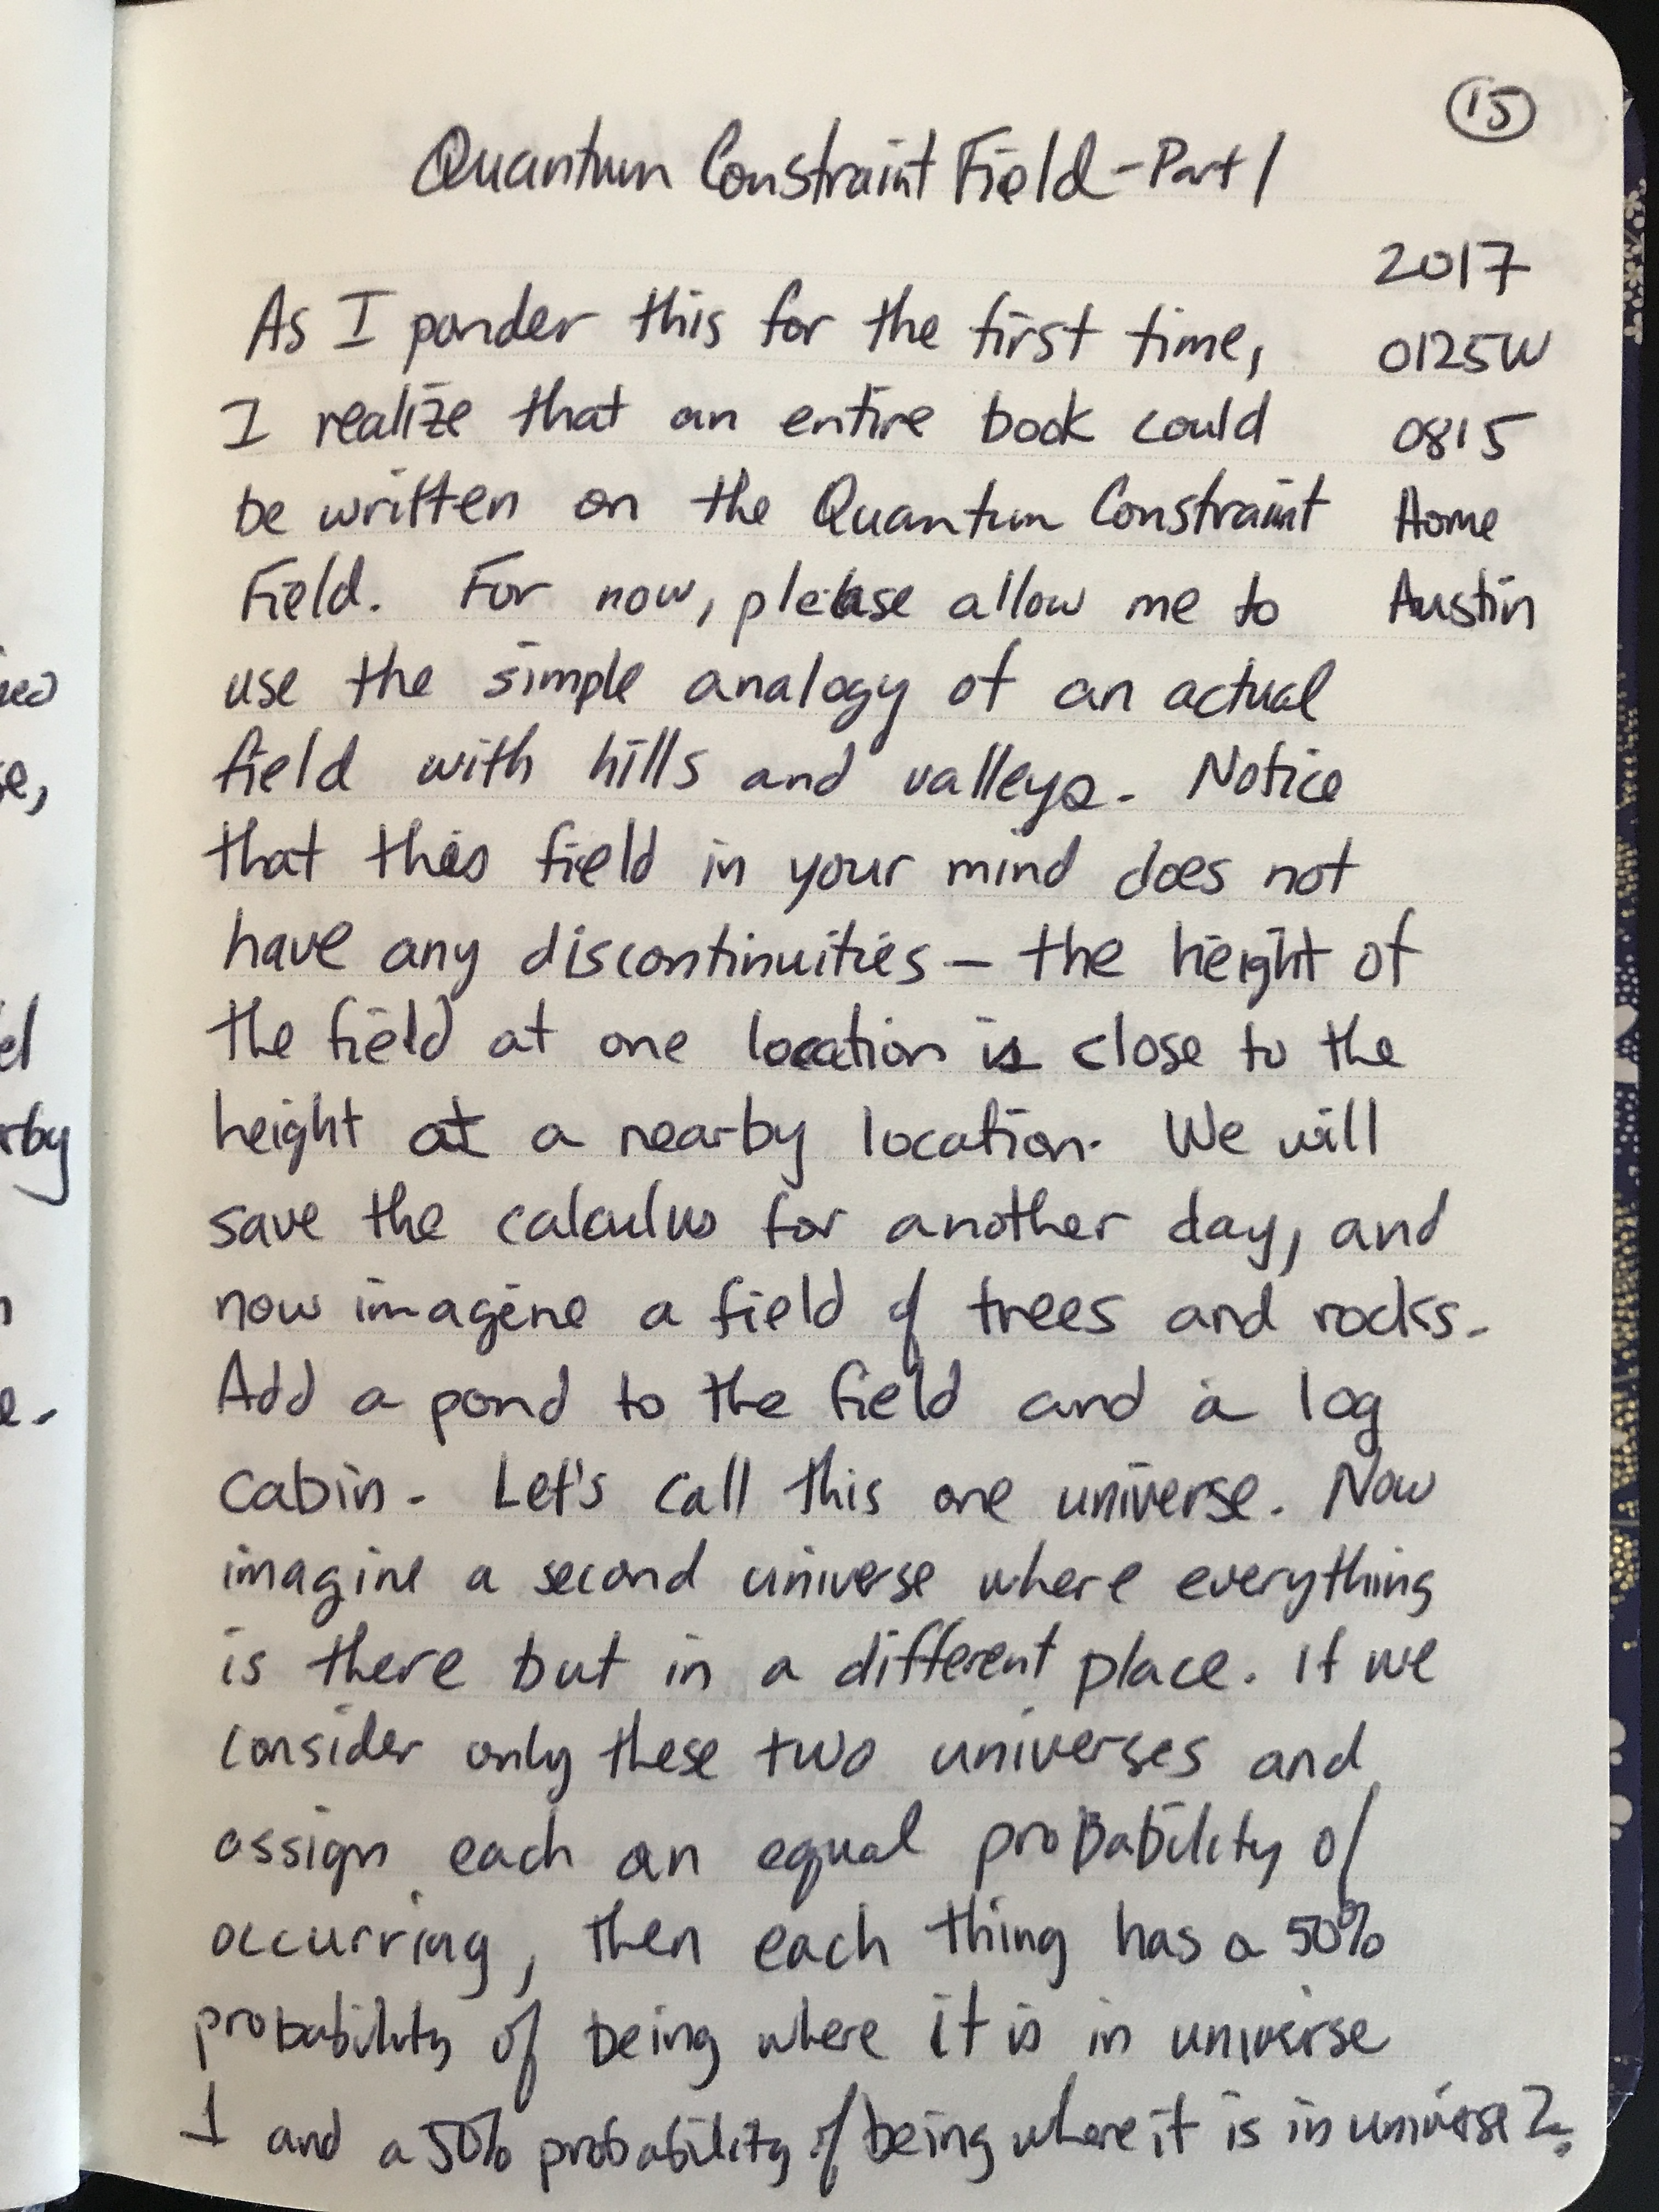 15
Quantum Constraint Field - Part 1
2017
0125W
0815
Home
Austin
As I ponder this for the first time,
I realize that an entire book could
be written on the Quantum Constraint
Field. For now, please allow me to
use the simple analogy of an actual
field with hills and valleys. Notice
that this field in your mind does not
have any discontinuities — the height of
the field at one location is close to the
height at a nearby location. We will
save the calculus for another day, and
now imagine a field of trees and rocks.
Add a pond to the field and a log
cabin. Let's call this one universe. Now
imagine a second universe where everything
is there but in a different place. If we
consider only these two universes and
assign each an equal probability of
occurring, then each thing has a 50%
probability of being where it is in universe
1 and a 50% probability of being where it is in universe 2.